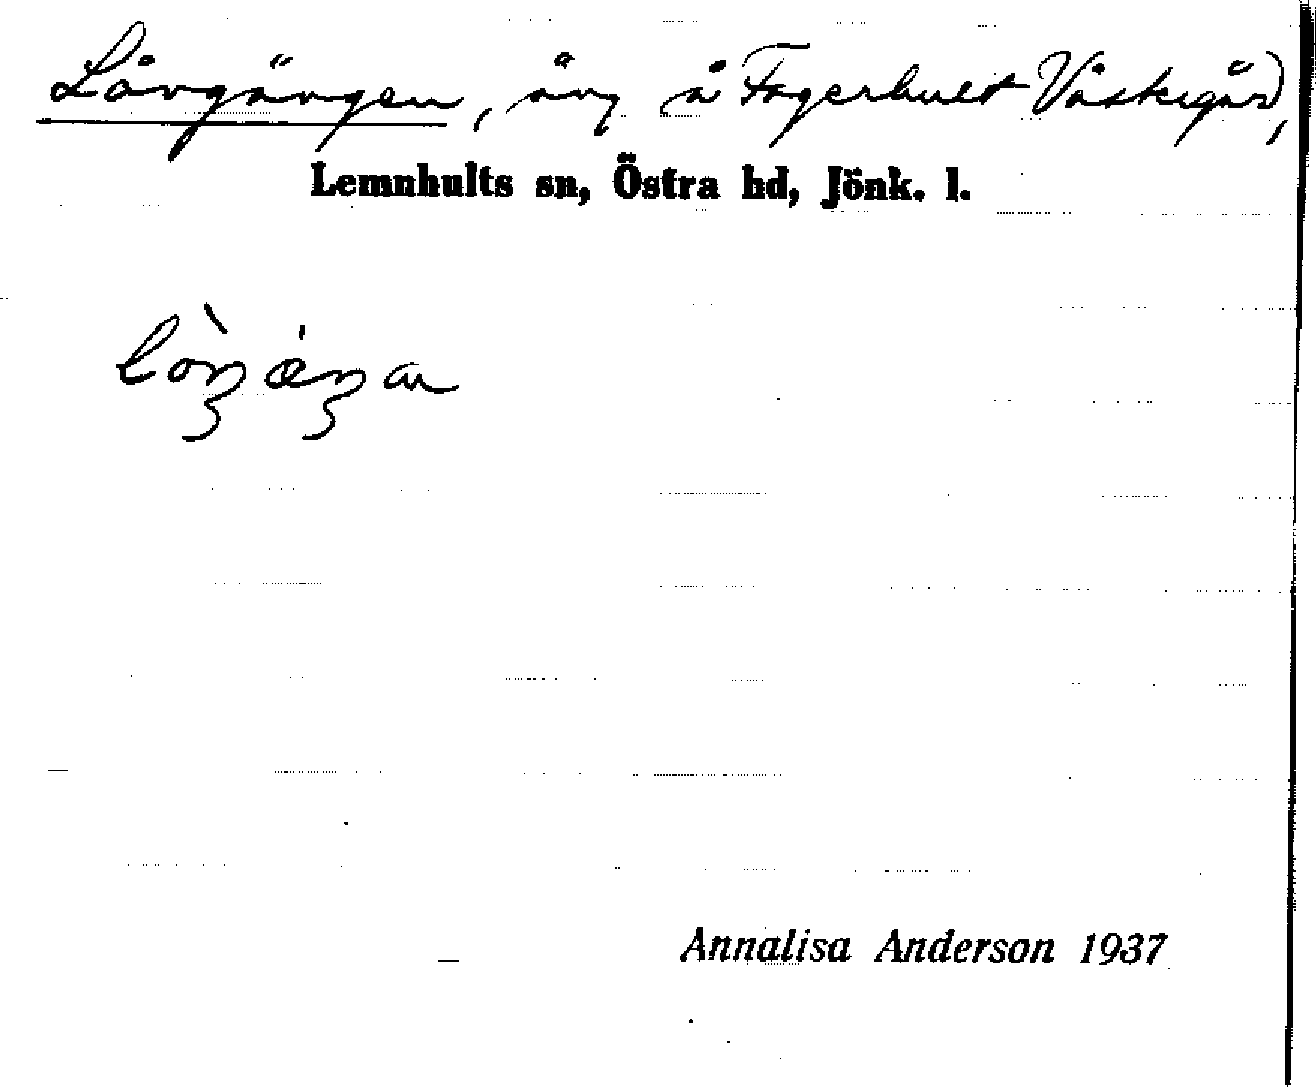 Långängen, äng å Fagerhult Västregård,
Lemnhults sn, Östra hd, Jönk. l.
Annalisa Anderson 1937